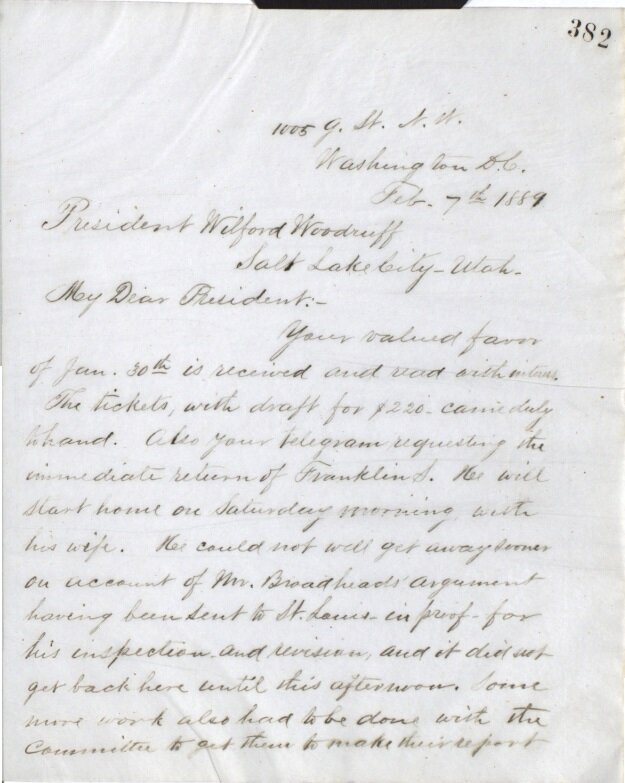 382
1005 G. St. N. W.
Washington D.C.
Feb. 7th 1889
President Wilford Woodruff
Salt Lake City - Utah -
My Dear President:-
Your valued favor
of Jan. 30th is received and read with interest.
The tickets, with draft for $220 - came duly
to hand. Also your telegram requesting the
immediate return of Franklin S. He will
start home on Saturday morning with
his wife. He could not well get away sooner
on account of Mr. Broadheads' argument
having been sent to St. Louis - in proof - for
his inspection and revision, and it did not
get back here until this afternoon. Some
more work also had to be done with the
Committee to get them to make their report